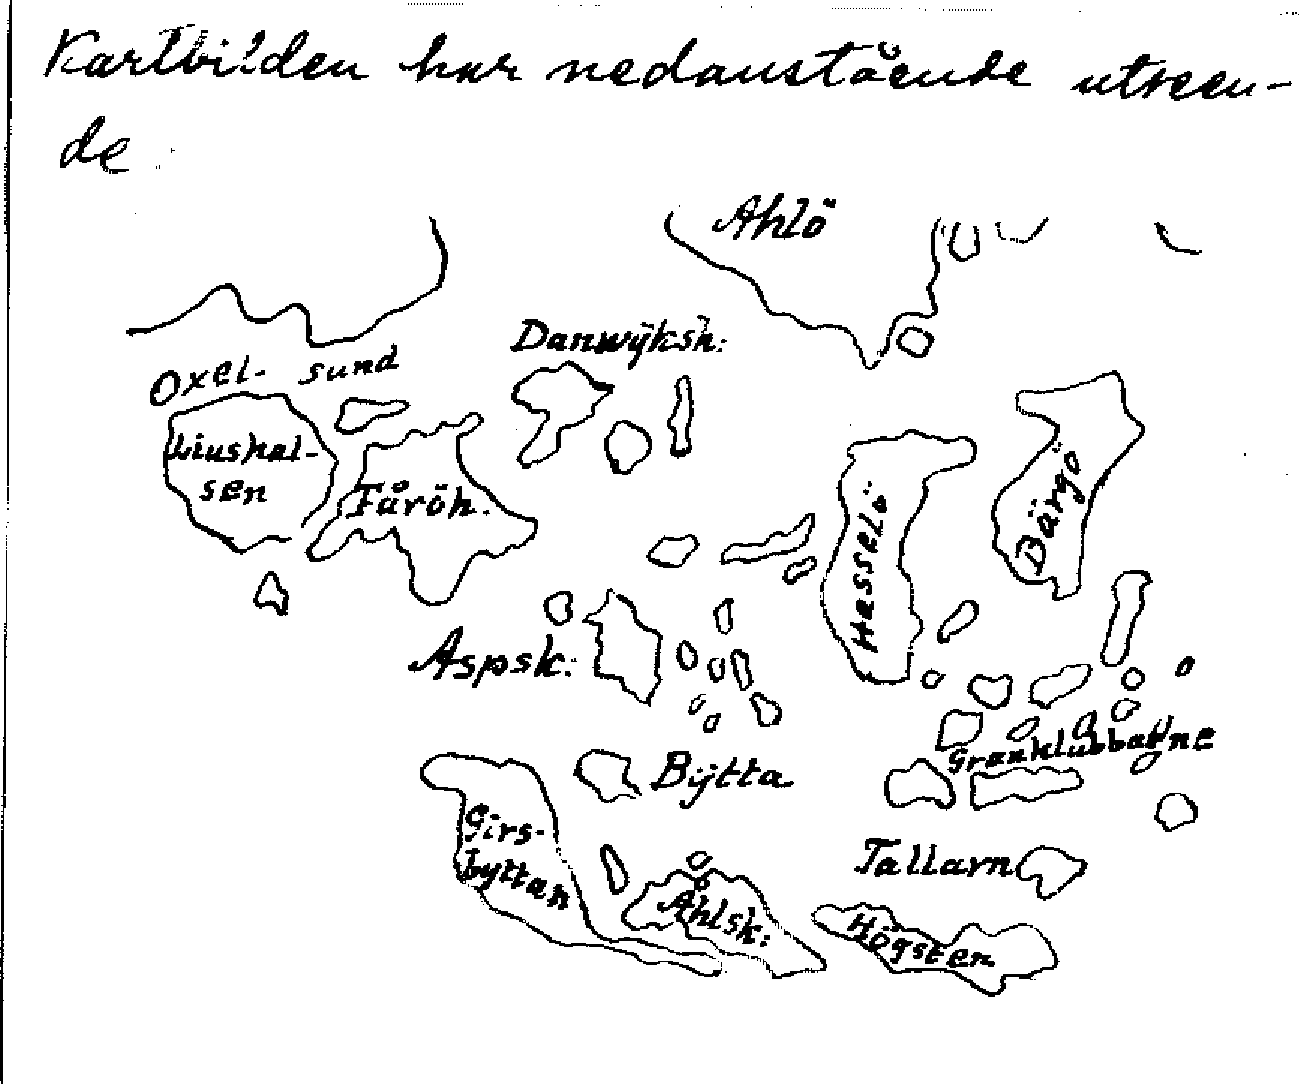 Kartbilden har nedanstående utseen-
de
Ahlö
Danwÿksh:
Oxel- sund
Liushal-
sen
Fåröh.
Hasselö
Bärgö
Aspsk:
Granklubbarne
Bÿtta
Girs-
byttan
Tallarn
Åhlsk:
Högsten